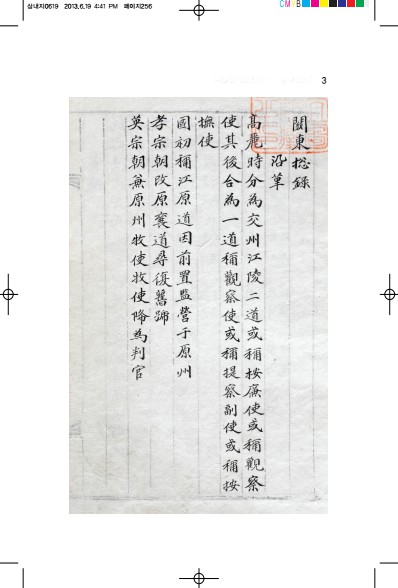 심내지0619  2013.6.19 4:41 PM  페이지256
CM
3
關東揔錄
沿革
高麗時分為交州江陵二道或稱按廉使或稱觀察
使其後合為一道稱觀察使或稱提察副使或稱按
撫使
國初稱江原道因前置監營于原州
孝宗朝改原襄道尋復舊號
英宗朝兼原州牧使牧使降為判官